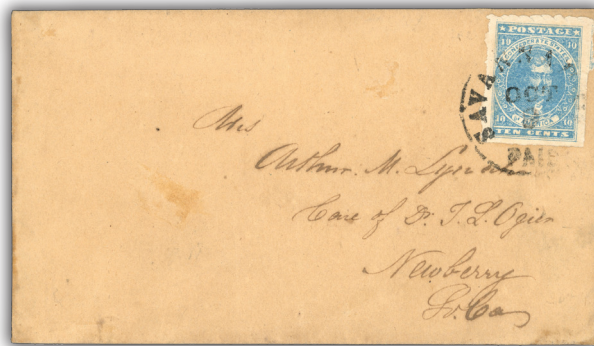 POSTAGE
10 10
10 10
TEN CENTS
SAVANNA
OCT
PAID
Mrs
Arthur. M.
Care of Dr. T. L. Ogier
Newberry
So. Ca